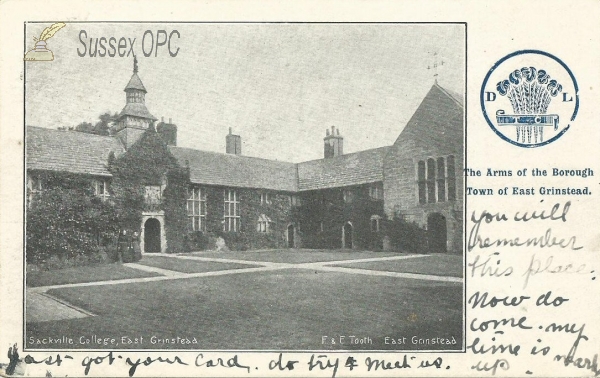 Sussex OPC
D L
The Arms of the Borough
Town of East Grinstead.
you will
remember
this place.
Now do
come. my
time is nearly
up.
Sackville College, East Grinstead
F. & E. Tooth East Grinstead
Just got your card. do try & meet us.